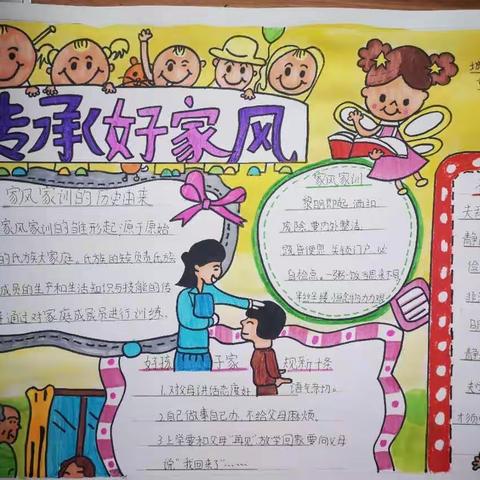 传承好家风
家风家训的历史由来
家风家训的雏形起源于原始
的氏族大家庭。氏族的首负责氏族
成员的生产和生活知识与技能的传
并通过对家庭成员进行训练。
家风家训
黎明即起,洒扫
庭除,要内外整洁
既昏便息,关锁门户,必
自检点。一粥一饭,当思来不易
半丝半缕,恒念物力力艰
好孩子家规新十条
1.对父母讲话态度好,语气亲切。
2.自己做事自己办,不给父母麻烦。
3.上学要和父母“再见”放学回家要向父母
说“我回来了”……
夫
静
俭
非
静